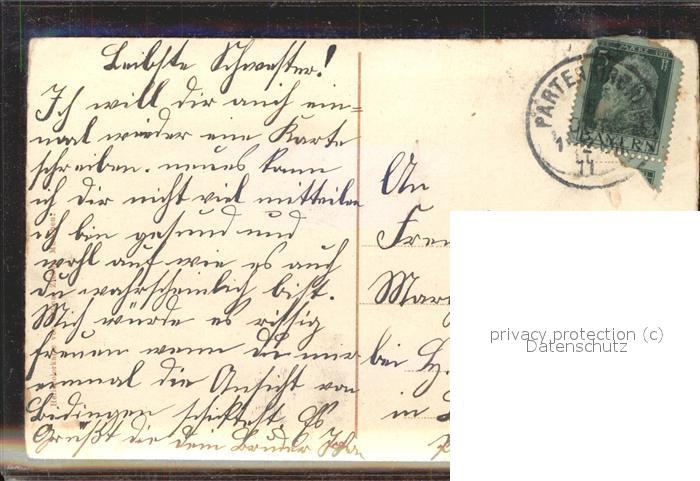 Leibste Schwester!
Ich will dir auch ein=
mal wieder eine Karte
schreiben. neues kann
ich dir nicht viel mitteilen
ich bin gesund und
wohl auf wie es auch
du wahrscheinlich bist.
Mich würde es rissig
freuen wenn du mir
einmal die Ansicht von
Bidingen schickst. Es
Grüßt die dein Bruder
PARTEN
BAYERN
11
An
bei H.
in
privacy protection (c)
Datenschutz